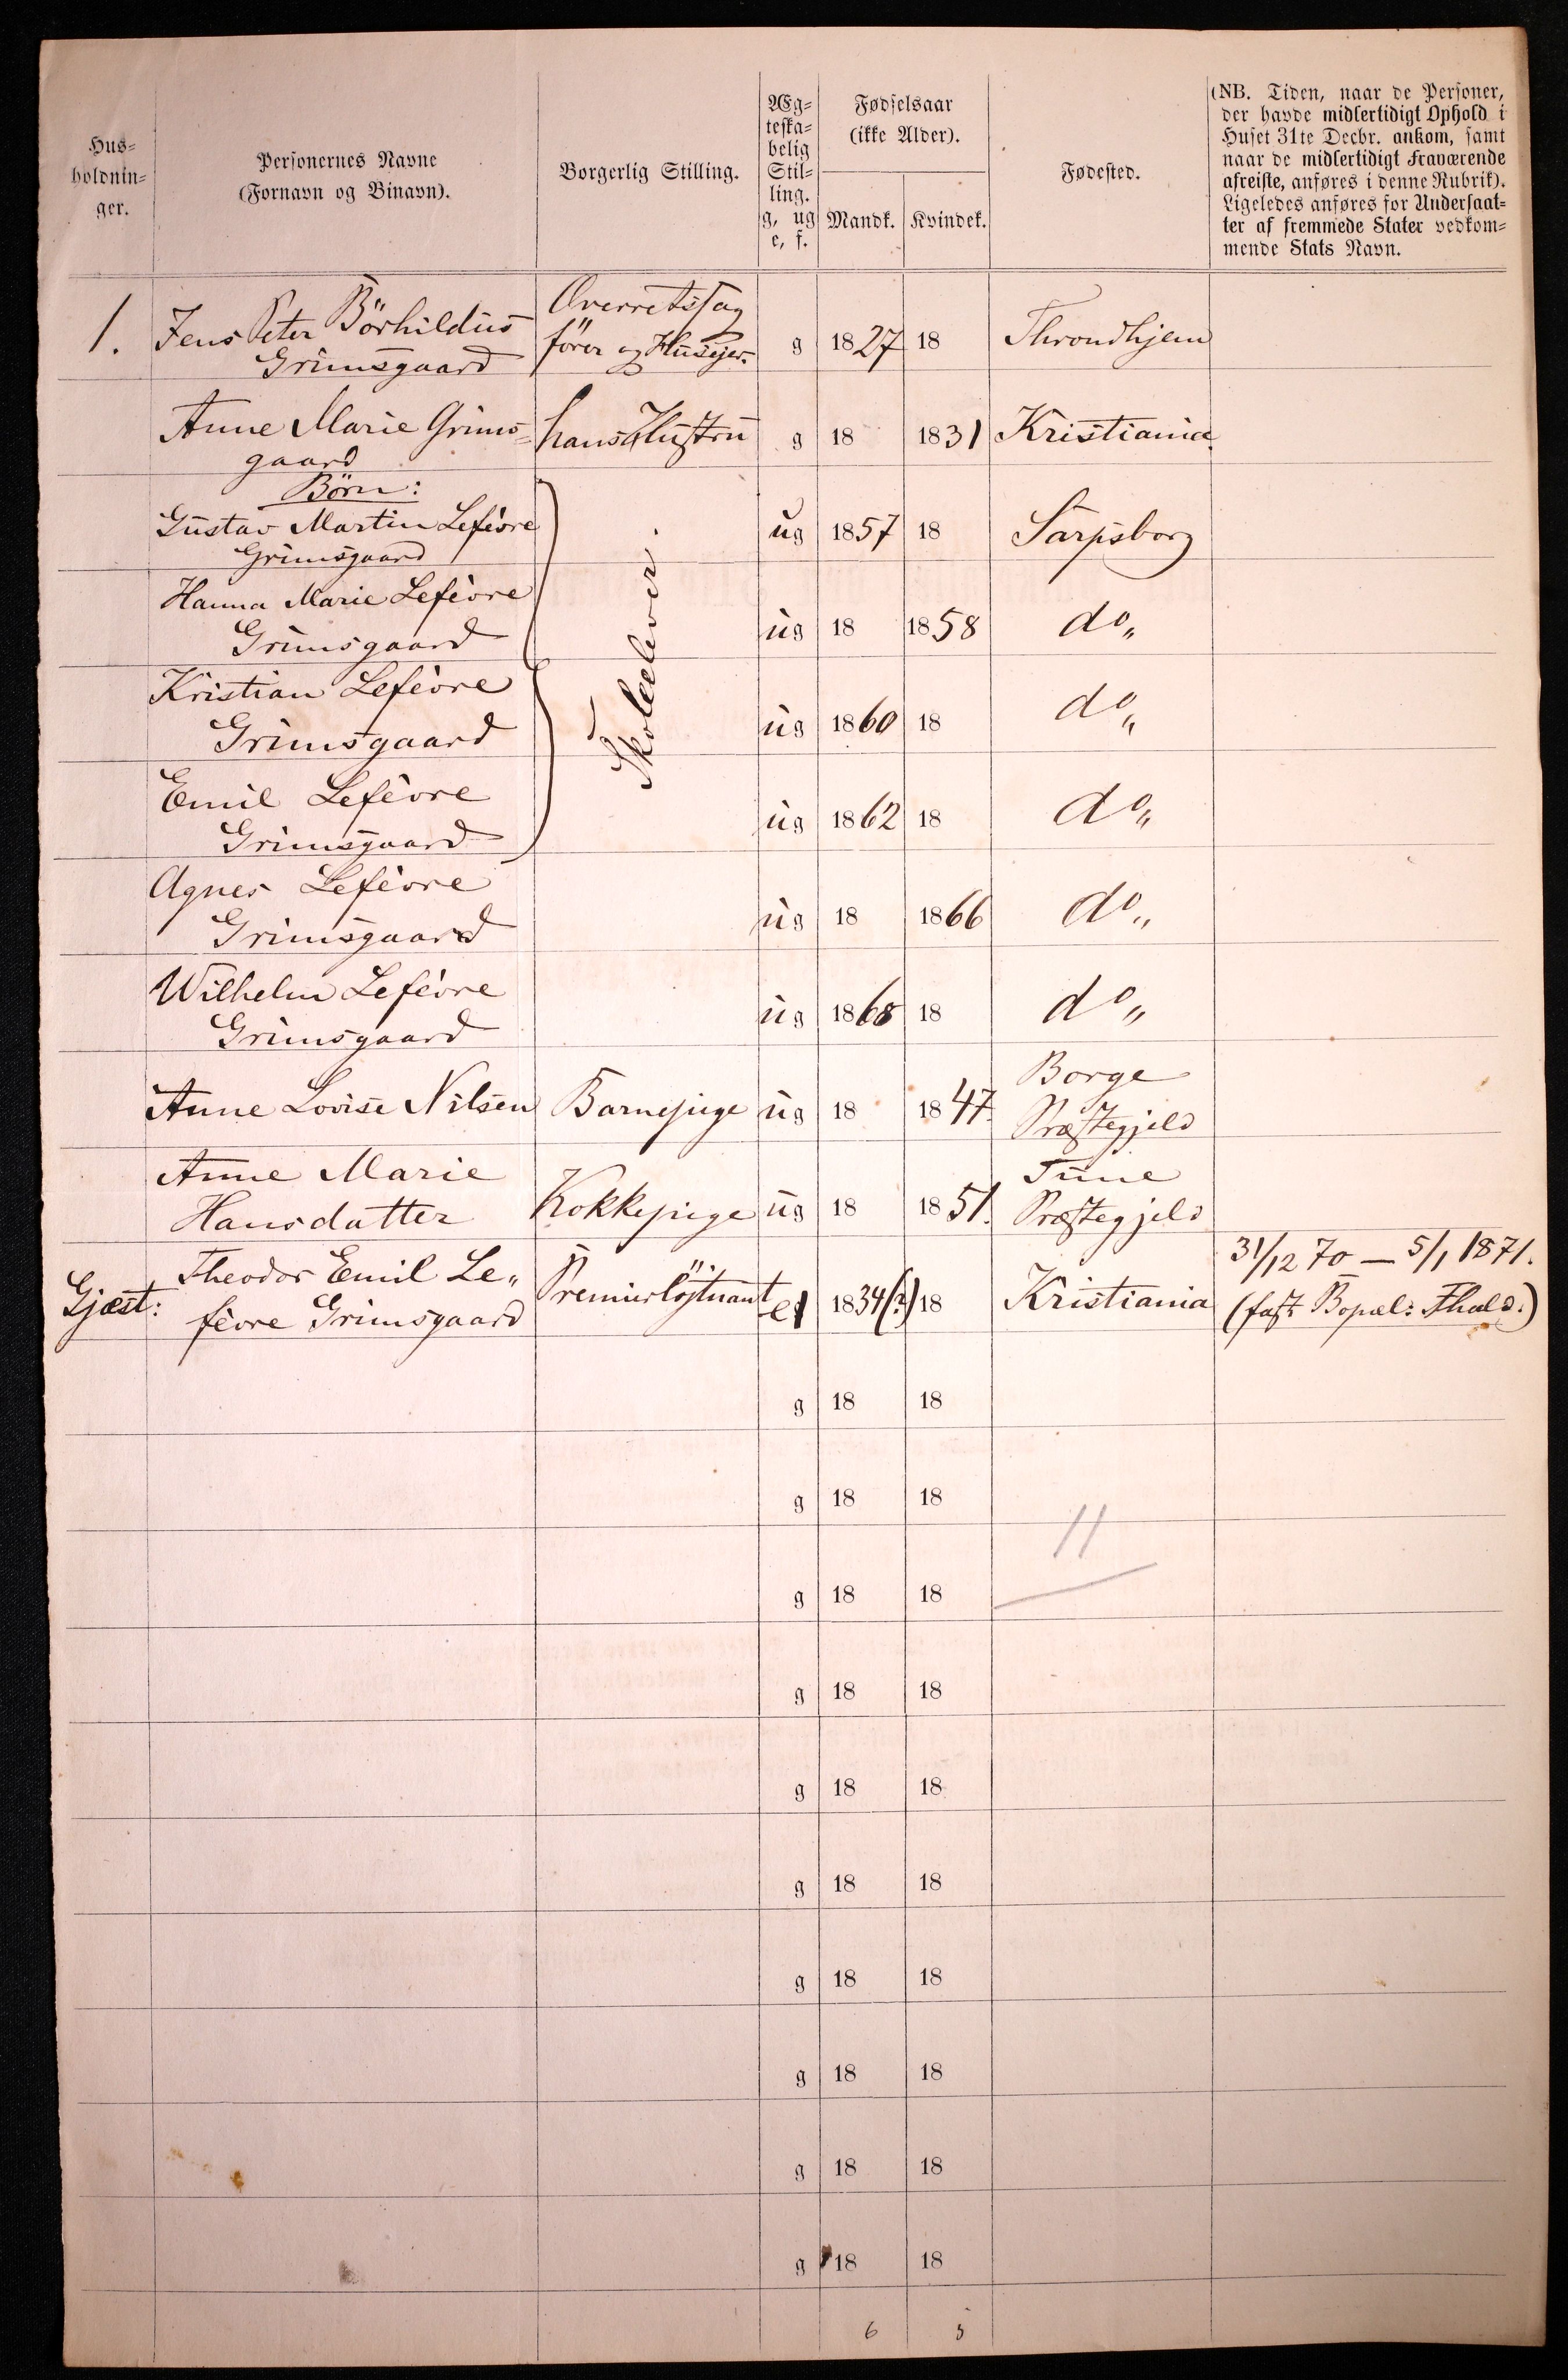 Hus=
holdnin=
ger.
Personernes Navne
(Fornavn og Binavn).
Borgerlig Stilling.
Æg=
teska=
belig
Stil=
ling.
g, ug
e, f.
Fødselsaar
(ikke Alder).
Mandk. Kvindek.
Fødested.
(NB. Tiden, naar de Personer,
der havde midlertidigt Ophold i
Huset 31te Decbr. ankom, samt
naar de midlertidigt Fraværende
afreiste, anføres i denne Rubrik).
Ligeledes anføres for Undersaat=
ter af fremmede Stater vedkom=
mende Stats Navn.
1. Jens Peter Börhildus Overretssag
Grimsgaard förer og Husejer. g 1827 18 Throndhjem
Anne Marie Grims= hans Hustru g 18 1831 Kristiania.
gaard
Börn:
Gustav Martin Lefèvre ug 1857 18 Sarpsborg
Grimsgaard
Skoleelever.
Hanna Marie Lefèvre
Grimsgaard ug 18 1858 do„
Kristian Lefèvre
Grimsgaard ug 1860 18 do„
Emil Lefèvre
Grimsgaard ug 1862 18 do„
Agnes Lefèvre
Grimsgaard ug 18 1866 do„
Wilhelm Lefèvre
Grimsgaard ug 1868 18 do„
Anne Lovise Nilsen Barnepige ug 18 1847. Borge
Præstegjeld
Anne Marie
Hansdatter Kokkepige ug 18 1851. Tune
Præstegjeld
Gjæst: Theodor Emil Le„
fèvre Grimsgaard Premierlöjtnant e 1834(?) 18 Kristiania 31/12 70 — 5/1 1871.
(fast Bopæl: Fhald.)
g 18 18
g 18 18
11
g 18 18
g 18 18
g 18 18
g 18 18
g 18 18
g 18 18
g 18 18
g 18 18
6 5